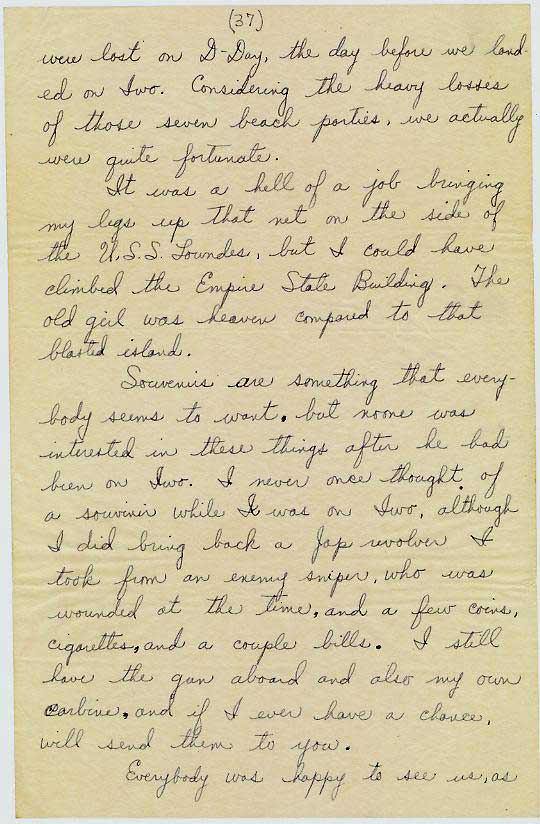 (37)
were lost on D-Day, the day before we land-
ed on Iwo. Considering the heavy losses
of those seven beach parties, we actually
were quite fortunate.
It was a hell of a job bringing
my legs up that net on the side of
the U.S.S. Lowndes, but I could have
climbed the Empire State Building. The
old girl was heaven compared to that
blasted island.
Souvenirs are something that every-
body seems to want, but noone was
interested in these things after he had
been on Iwo. I never once thought of
a souvinir while I was on Iwo, although
I did bring back a Jap revolver I
took from an enemy sniper, who was
wounded at the time, and a few coins,
cigarettes, and a couple bills. I still
have the gun aboard and also my own
carbine, and if I ever have a chance,
will send them to you.
Everybody was happy to see us, as